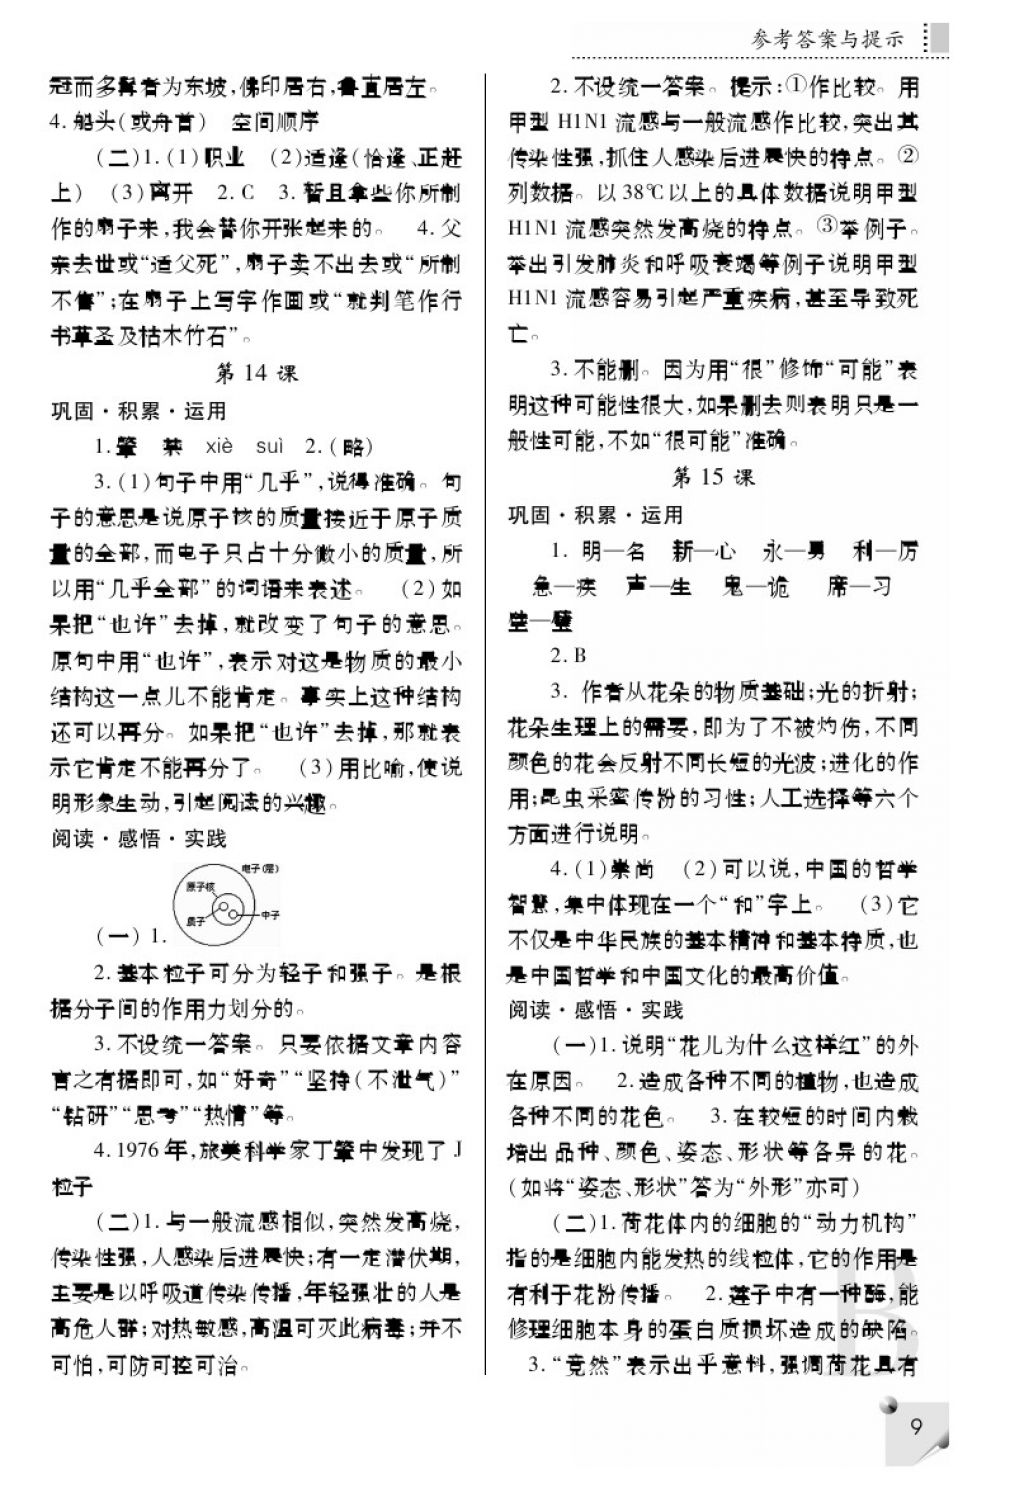 参考答案与提示
冠而多髯者为东坡,佛印居右,鲁直居左。
4. 船头(或舟首)　空间顺序
(二)1. (1)职业　(2)适逢(恰逢、正赶
上)　(3)离开　2. C　3. 暂且拿些你所制
作的扇子来,我会替你开张起来的。　4. 父
亲去世或“适父死”,扇子卖不出去或“所制
不售”;在扇子上写字作画或“就判笔作行
书草圣及枯木竹石”。
第 14 课
巩固·积累·运用
1. 肇　禁　xiè　suì　2. (略)
3. (1)句子中用“几乎”,说得准确。句
子的意思是说原子核的质量接近于原子质
量的全部,而电子只占十分微小的质量,所
以用“几乎全部”的词语来表述。　(2)如
果把“也许”去掉,就改变了句子的意思。
原句中用“也许”,表示对这是物质的最小
结构这一点儿不能肯定。事实上这种结构
还可以再分。如果把“也许”去掉,那就表
示它肯定不能再分了。　(3)用比喻,使说
明形象生动,引起阅读的兴趣。
阅读·感悟·实践
(一) 1.
电子(层)
原子核
质子
中子
2. 基本粒子可分为轻子和强子。是根
据分子间的作用力划分的。
3. 不设统一答案。只要依据文章内容
言之有据即可,如“好奇”“坚持(不泄气)”
“钻研”“思考”“热情”等。
4. 1976 年,旅美科学家丁肇中发现了 J
粒子
(二)1. 与一般流感相似,突然发高烧,
传染性强,人感染后进展快;有一定潜伏期,
主要是以呼吸道传染传播,年轻强壮的人是
高危人群;对热敏感,高温可灭此病毒;并不
可怕,可防可控可治。
2. 不设统一答案。提示:①作比较。用
甲型 H1N1 流感与一般流感作比较,突出其
传染性强,抓住人感染后进展快的特点。②
列数据。以 38℃以上的具体数据说明甲型
H1N1 流感突然发高烧的特点。③举例子。
举出引发肺炎和呼吸衰竭等例子说明甲型
H1N1 流感容易引起严重疾病,甚至导致死
亡。
3. 不能删。因为用“很”修饰“可能”表
明这种可能性很大,如果删去则表明只是一
般性可能,不如“很可能”准确。
第 15 课
巩固·积累·运用
1. 明—名　新—心　永—勇　利—厉
急—疾　声—生　鬼—诡　席—习
壁—璧
2. B
3. 作者从花朵的物质基础;光的折射;
花朵生理上的需要,即为了不被灼伤,不同
颜色的花会反射不同长短的光波;进化的作
用;昆虫采蜜传粉的习性;人工选择等六个
方面进行说明。
4. (1)崇尚　(2)可以说,中国的哲学
智慧,集中体现在一个“和”字上。　(3)它
不仅是中华民族的基本精神和基本特质,也
是中国哲学和中国文化的最高价值。
阅读·感悟·实践
(一)1. 说明“花儿为什么这样红”的外
在原因。　2. 造成各种不同的植物,也造成
各种不同的花色。　3. 在较短的时间内栽
培出品种、颜色、姿态、形状等各异的花。
(如将“姿态、形状”答为“外形”亦可)
(二)1. 荷花体内的细胞的“动力机构”
指的是细胞内能发热的线粒体,它的作用是
有利于花粉传播。　2. 莲子中有一种酶,能
修理细胞本身的蛋白质损坏造成的缺陷。
3. “竟然”表示出乎意料,强调荷花具有
9